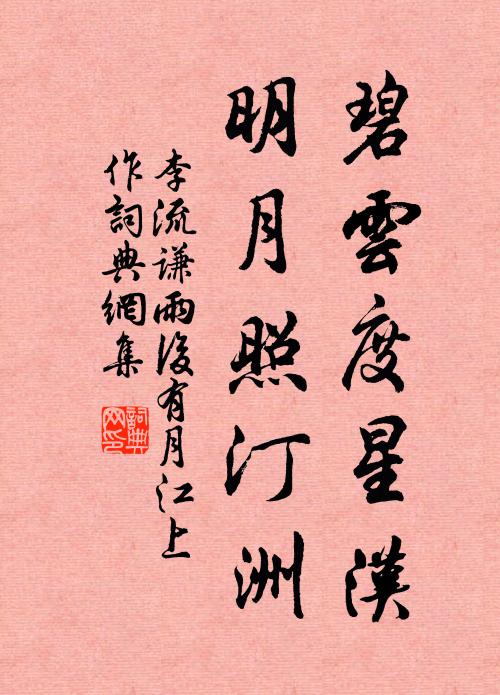 碧雲度星漢
明月照汀洲
李流謙雨後有月江上
作詞典網集
詞典网印